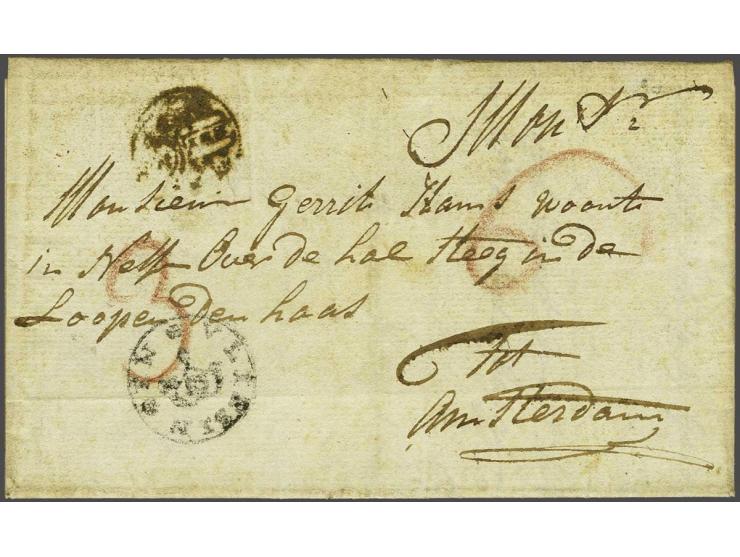 Mon Sr
Monsieur Gerrit Hams woont
in Ness Over de hal steeg in de
Loopenden haas
3
6
tot
Amsterdam